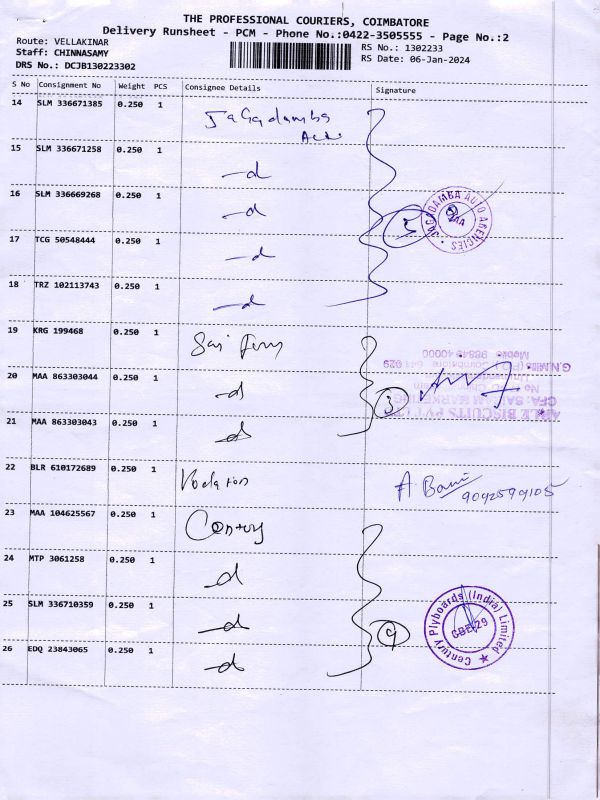 THE PROFESSIONAL COURIERS, COIMBATORE
Delivery Runsheet - PCM - Phone No.:0422-3505555 - Page No.:2
Route: VELLAKINAR
Staff: CHINNASAMY
DRS No.: DCJB130223302
RS No.: 1302233
RS Date: 06-Jan-2024
S No Consignment No Weight PCS Consignee Details Signature
14 SLM 336671385 0.250 1 Jagadamba
15 SLM 336671258 0.250 1 -d
16 SLM 336669268 0.250 1 -d
5
JAGADAMBA AUTO AGENCIES
17 TCG 50548444 0.250 1 -d
18 TRZ 102113743 0.250 1 -d
19 KRG 199468 0.250 1
G.N.Mills (P.O.) Coimbatore 641 029
Mobile 98849 40000
20 MAA 863303044 0.250 1 -d
3
ABLE BISCUITS PVT LTD
MARKETING
21 MAA 863303043 0.250 1 -d
22 BLR 610172689 0.250 1
A
9092599105
23 MAA 104625567 0.250 1 Century
24 MTP 3061258 0.250 1 -d
25 SLM 336710359 0.250 1 -d
Century Plyboards (India) Limited
CBE-29
26 EDQ 23843065 0.250 1 -d